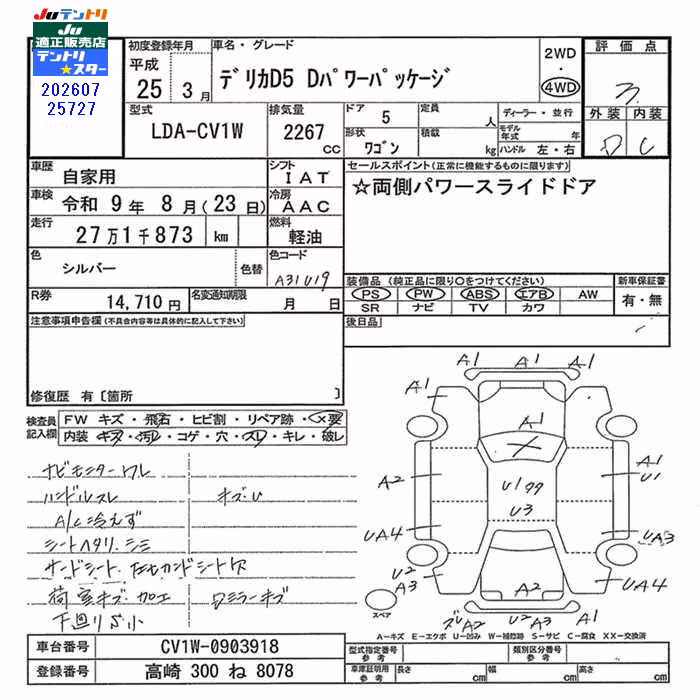 JUテントリ
JU
適正販売店
テントリ
★スター
202607
25727
初度登録年月
平成
25 3月
車名・グレード
デリカD5 Dパワーパッケージ
2WD
・
4WD
評価点
3
外装 内装
D C
型式
LDA-CV1W
排気量
2267
CC
ドア
5
定員
人
形状
ワゴン
積載
kg
ディーラー・並行
モデル年式
年
ハンドル 左・右
車歴
自家用
シフト
IAT
車検
令和 9年 8月(23日)
冷房
AAC
走行
27万1千873 km
燃料
軽油
色
シルバー
色替
色コード
A31U19
R券
14,710円
名変通知期限
月 日
セールスポイント(正常に機能するものに限ります)
☆両側パワースライドドア
装備品(純正品に限り○をつけてください)
PS PW ABS エアB AW
SR ナビ TV カワ
新車保証書
有・無
後日品
注意事項申告欄(不具合内容等は具体的に記入して下さい)
修復歴 有〔箇所 〕
検査員
記入欄
FW キズ・飛石・ヒビ割・リペア跡・X要
内装 キズ・汚レ・コゲ・穴・スレ・キレ・破レ
ナビモニターワレ
ハンドルスレ
キズU
A/C冷えず
シートヘタリ・シミ
サードシート、
荷室キズ・加工
ミラーキズ
下廻りS小
A1 A1 A1
A1 A1
A1
X
A2
A1
U1
U199
U3
UA4
UA3
U2
A3
A2
UA4
スペア
ズレ A2
A1
A1
A-キズ E-エクボ U-凹み W-補修跡 S-サビ C-腐食 XX-交換済
車台番号
CV1W-0903918
登録番号
高崎 300 ね 8078
型式指定番号
参考
類別区分番号
参考
車庫証明用
参考
長さ cm
幅 cm
高さ cm